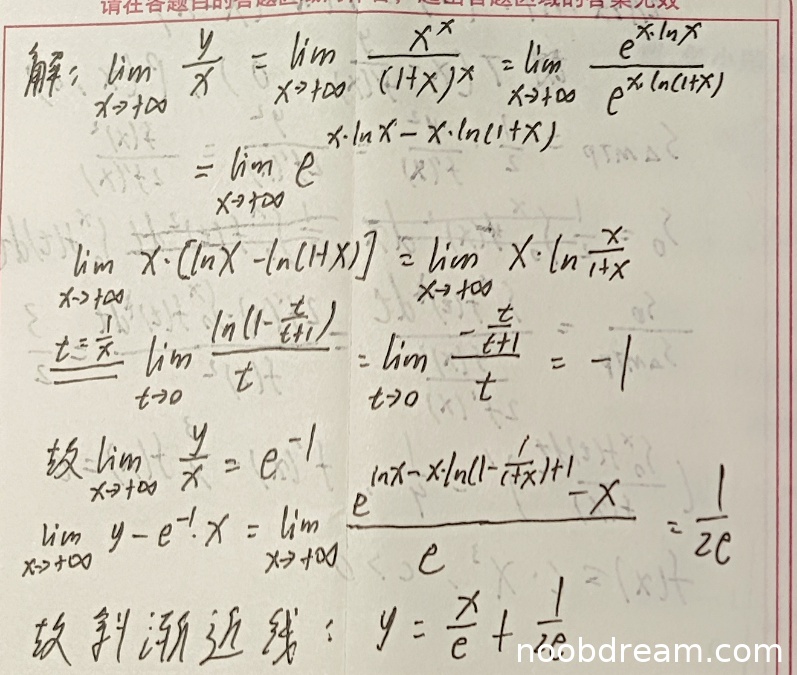 解: lim_{x→+∞} y/x = lim_{x→+∞} x^x/(1+x)^x = lim_{x→+∞} e^{x·lnx}/e^{x·ln(1+x)}
= lim_{x→+∞} e^{x·lnx - x·ln(1+x)}
lim_{x→+∞} x·[lnx - ln(1+x)] = lim_{x→+∞} x·ln x/(1+x)
t=1/x lim_{t→0} ln(1 - t/(t+1))/t = lim_{t→0} (-t/(t+1))/t = -1
故 lim_{x→+∞} y/x = e^{-1}
lim_{x→+∞} y - e^{-1}·x = lim_{x→+∞} (e^{lnx - x·ln(1 - 1/(1+x)) + 1} - x)/e = 1/2e
故斜渐近线: y = x/e + 1/2e
noobdream.com